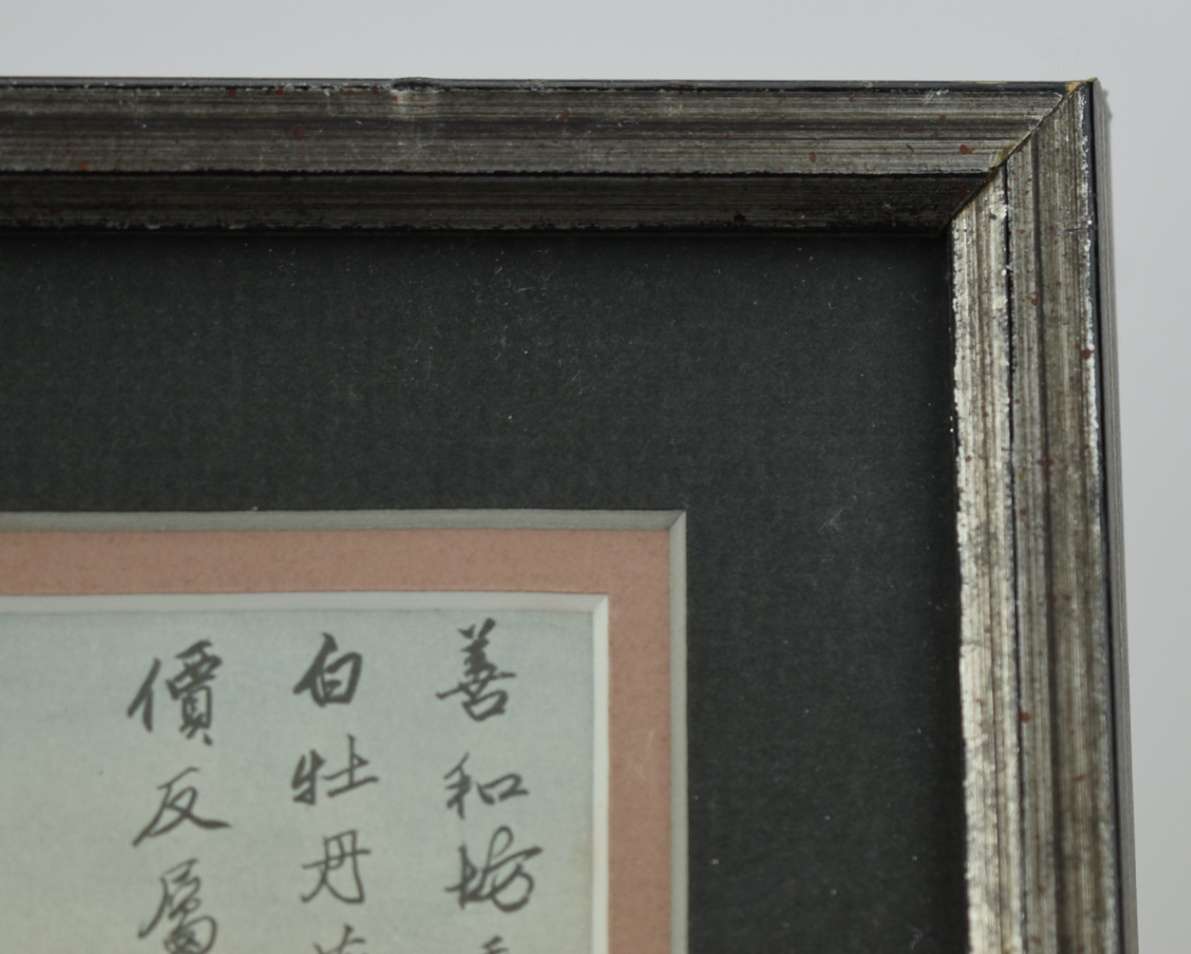 善和坊
白牡丹
價反屬